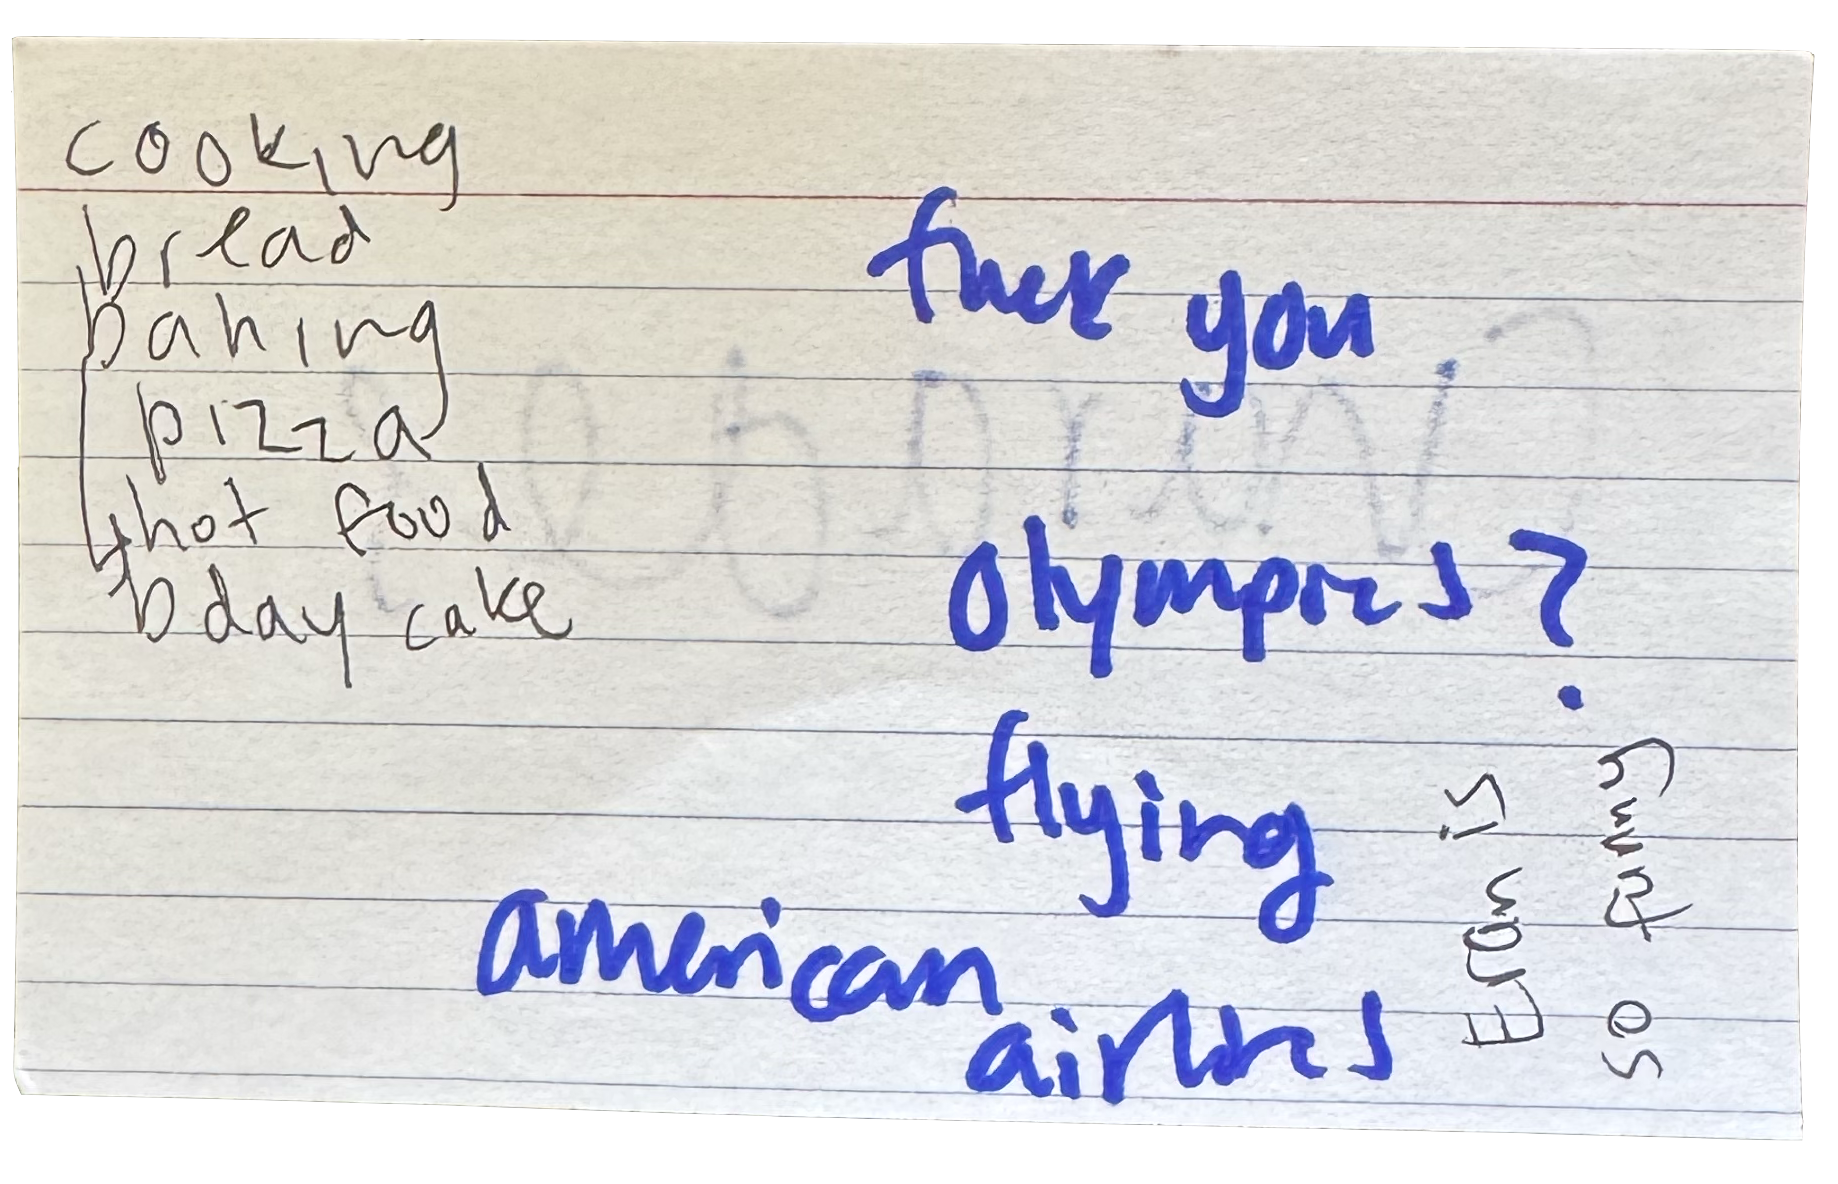 cooking
bread
baking
pizza
hot food
bday cake
fuck you
olympics?
flying
american
airlines
Eran is
so funny